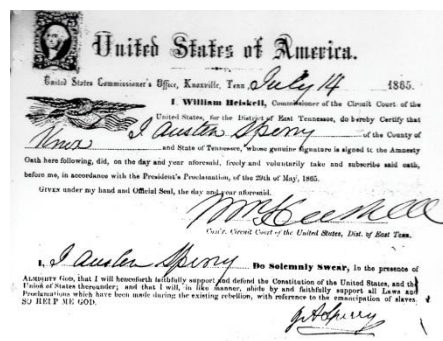 United States of America.
United States Commissioner's Office, Knoxville, Tenn July 14 1865.
I, William Heiskell, Commissioner of the Circuit Court of the
United States, for the District of East Tennessee, do hereby Certify that
J Austin Sperry of the County of
Knox and State of Tennessee, whose genuine signature is signed to the Amnesty
Oath here following, did, on the day and year aforesaid, freely and voluntarily take and subscribe said oath,
before me, in accordance with the President's Proclamation, of the 29th of May, 1865.
GIVEN under my hand and Official Seal, the day and year aforesaid.
Wm Heiskell
Com'r. Circuit Court of the United States, Dist. of East Tenn.
I, J Austin Sperry Do Solemnly Swear, in the presence of
ALMIGHTY GOD, that I will henceforth faithfully support and defend the Constitution of the United States, and the
Union of States thereunder; and that I will, in like manner, abide by and faithfully support all Laws and
Proclamations which have been made during the existing rebellion, with reference to the emancipation of slaves.
SO HELP ME GOD.
Sperry